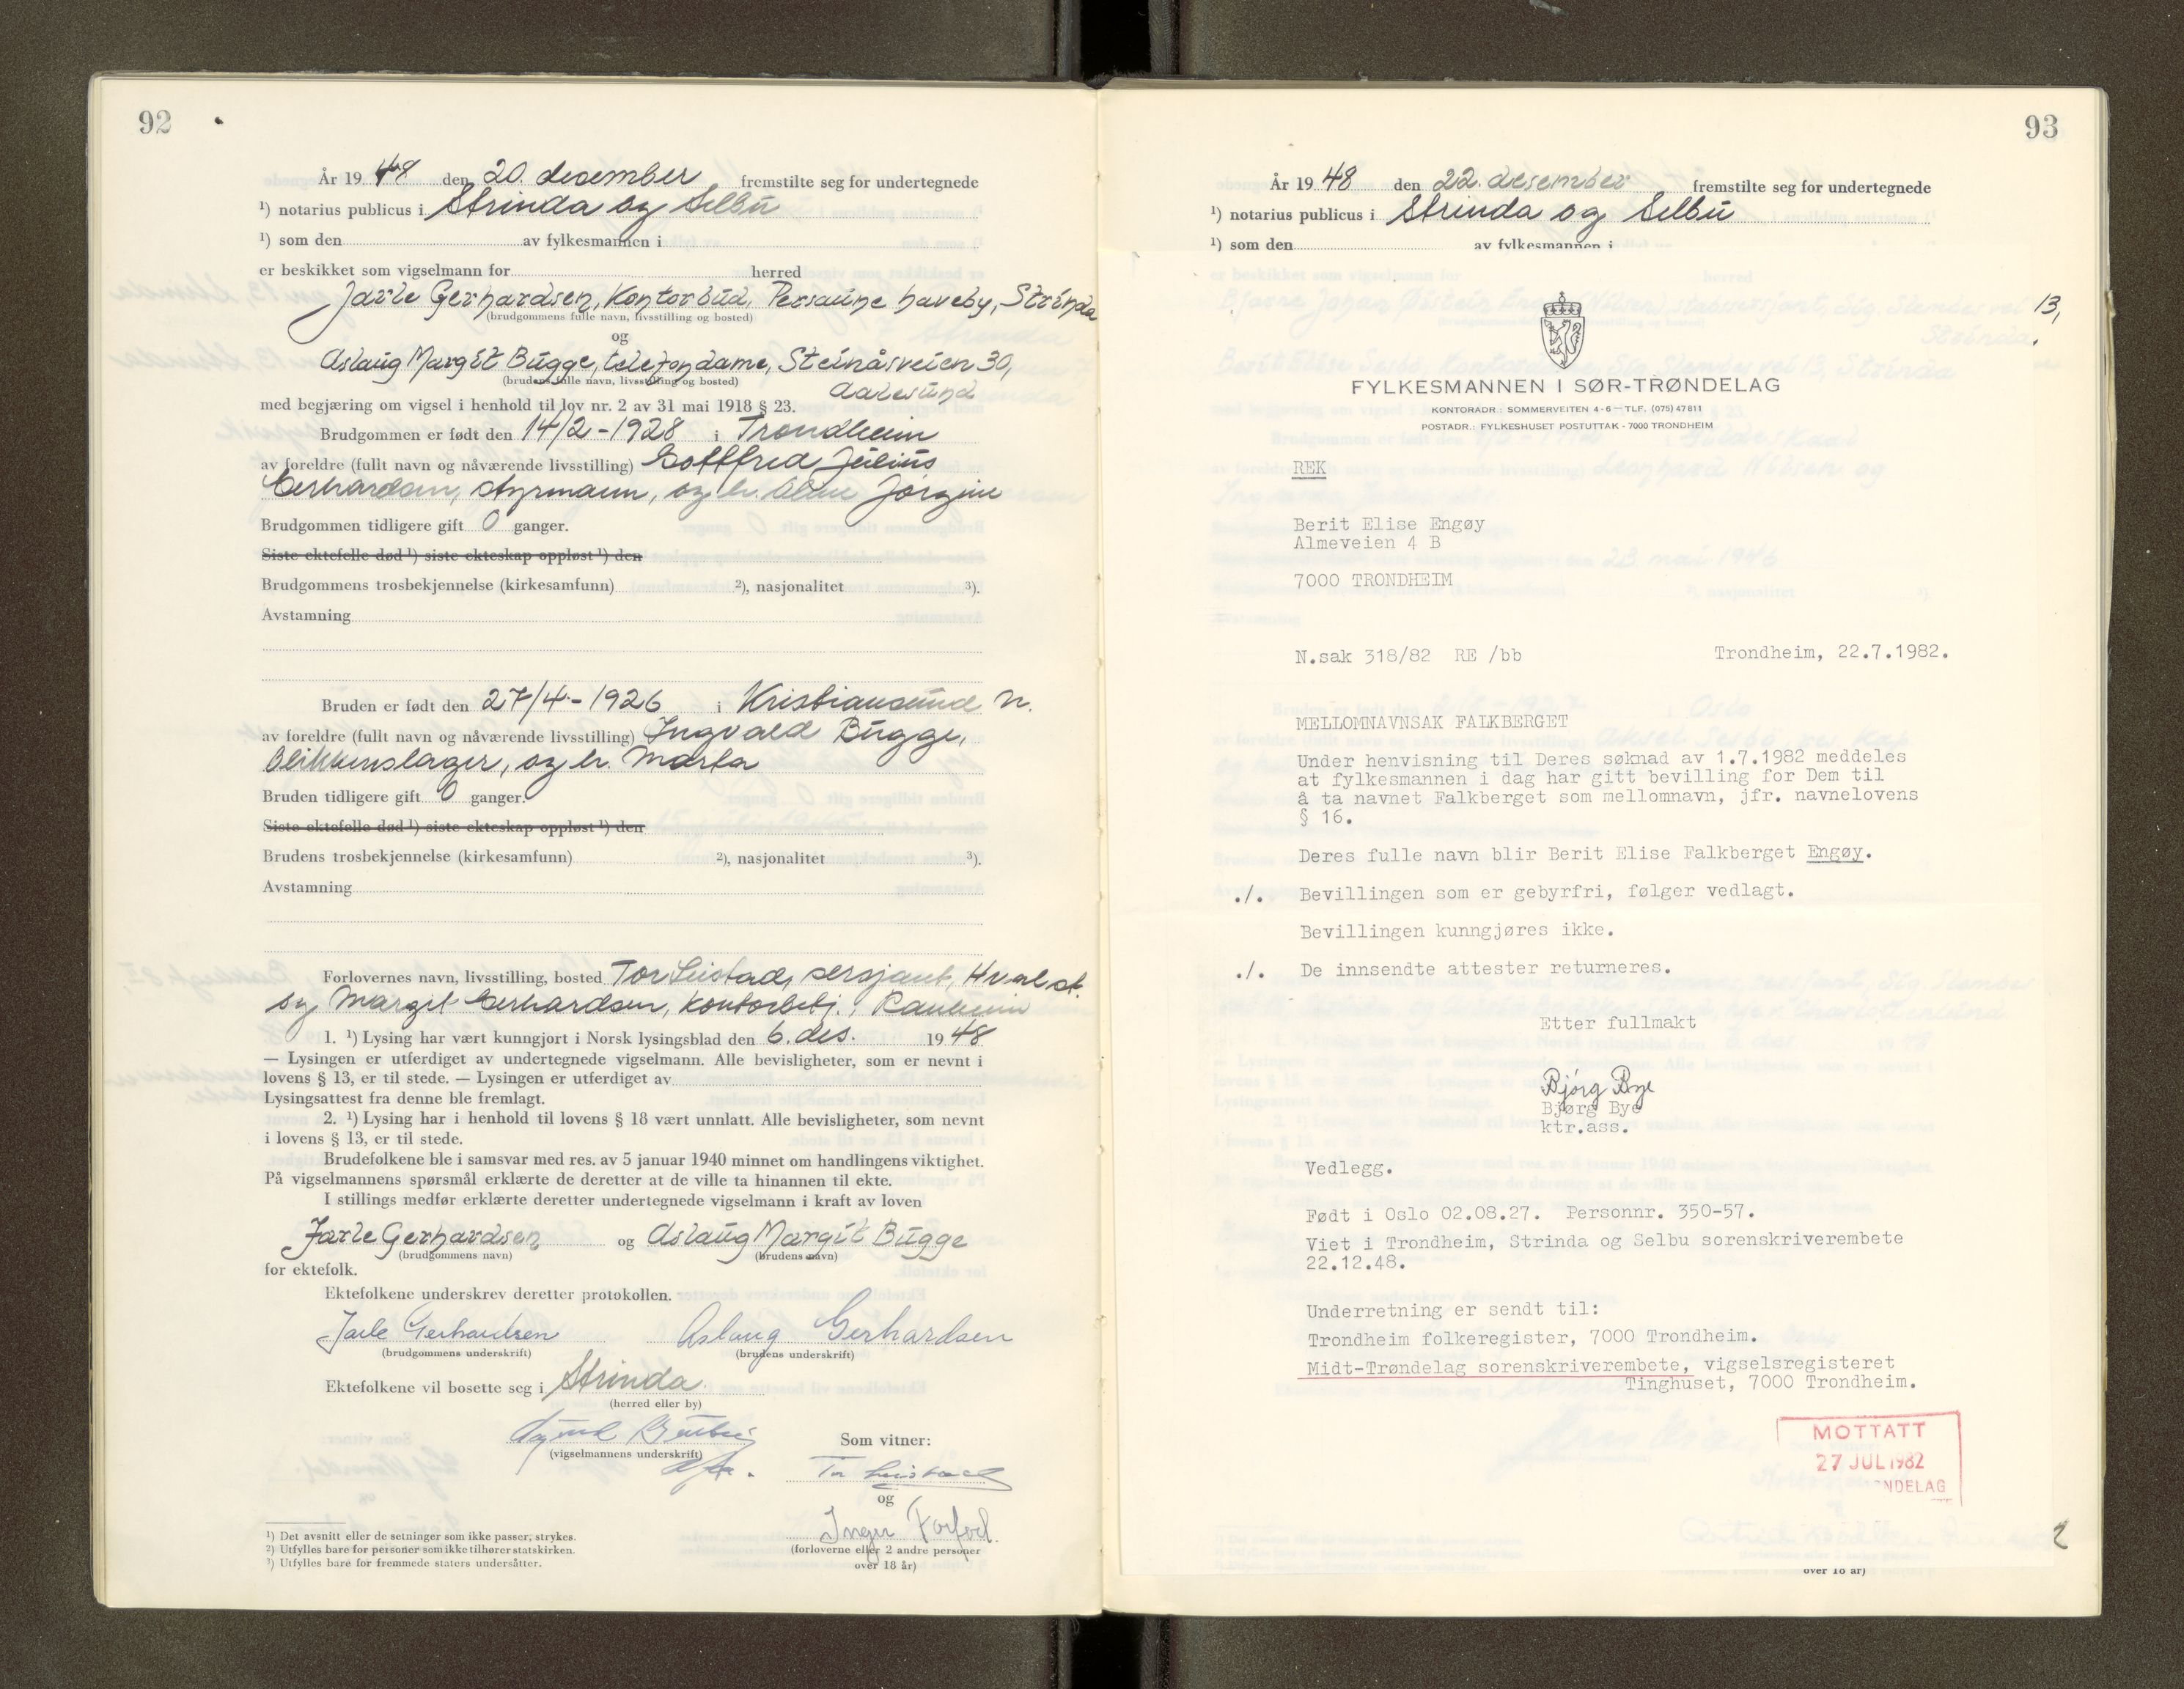 92
År 1948 den 20. desember fremstilte seg for undertegnede
¹) notarius publicus i Strinda og Selbu
¹) som den av fylkesmannen i
er beskikket som vigselmann for herred
Jarle Gerhardsen, Kontorbud, Persaune haveby, Strinda
(brudgommens fulle navn, livsstilling og bosted)
og
Aslaug Margit Bugge, telefondame, Steinåsveien 30,
(brudens fulle navn, livsstilling og bosted)
Aalesund
med begjæring om vigsel i henhold til lov nr. 2 av 31 mai 1918 § 23.
Brudgommen er født den 14/2-1928 i Trondheim
av foreldre (fullt navn og nåværende livsstilling) Gottfred Julius
Gerhardsen, styrmann, og h. Jørgine
Brudgommen tidligere gift 0 ganger.
Siste ektefelle død ¹) siste ekteskap oppløst ¹) den
Brudgommens trosbekjennelse (kirkesamfunn) ²), nasjonalitet ³).
Avstamning
Bruden er født den 27/4-1926 i Kristiansund N.
av foreldre (fullt navn og nåværende livsstilling) Ingvald Bugge,
blikkenslager, og h. Marta
Bruden tidligere gift 0 ganger.
Siste ektefelle død ¹) siste ekteskap oppløst ¹) den
Brudens trosbekjennelse (kirkesamfunn) ²), nasjonalitet ³).
Avstamning
Forlovernes navn, livsstilling, bosted Tor Leistad, sersjant,
og Margit Gerhardsen, kontorbetj., Ranheim
1. ¹) Lysing har vært kunngjort i Norsk lysingsblad den 6. des. 1948
— Lysingen er utferdiget av undertegnede vigselmann. Alle bevisligheter, som er nevnt i
lovens § 13, er til stede. — Lysingen er utferdiget av
Lysingsattest fra denne ble fremlagt.
2. ¹) Lysing har i henhold til lovens § 18 vært unnlatt. Alle bevisligheter, som nevnt
i lovens § 13, er til stede.
Brudefolkene ble i samsvar med res. av 5 januar 1940 minnet om handlingens viktighet.
På vigselmannens spørsmål erklærte de deretter at de ville ta hinannen til ekte.
I stillings medfør erklærte deretter undertegnede vigselmann i kraft av loven
Jarle Gerhardsen og Aslaug Margit Bugge
(brudgommens navn) (brudens navn)
for ektefolk.
Ektefolkene underskrev deretter protokollen.
Jarle Gerhardsen Aslaug Gerhardsen
(brudgommens underskrift) (brudens underskrift)
Ektefolkene vil bosette seg i Strinda.
(herred eller by)
(vigselmannens underskrift)
Som vitner:
Tor Leistad
og
Inger
(forloverne eller 2 andre personer
over 18 år)
¹) Det avsnitt eller de setninger som ikke passer, strykes.
²) Utfylles bare for personer som ikke tilhører statskirken.
³) Utfylles bare for fremmede staters undersåtter.
93
År 1948 den 22. desember fremstilte seg for undertegnede
¹) notarius publicus i Strinda og Selbu
¹) som den av fylkesmannen i
13,
FYLKESMANNEN I SØR-TRØNDELAG
KONTORADR.: SOMMERVEITEN 4-6 — TLF. (075) 47811
POSTADR.: FYLKESHUSET POSTUTTAK - 7000 TRONDHEIM
REK
Berit Elise Engøy
Almeveien 4 B
7000 TRONDHEIM
N.sak 318/82 RE /bb Trondheim, 22.7.1982.
MELLOMNAVNSAK FALKBERGET
Under henvisning til Deres søknad av 1.7.1982 meddeles
at fylkesmannen i dag har gitt bevilling for Dem til
å ta navnet Falkberget som mellomnavn, jfr. navnelovens
§ 16.
Deres fulle navn blir Berit Elise Falkberget Engøy.
./. Bevillingen som er gebyrfri, følger vedlagt.
Bevillingen kunngjøres ikke.
./. De innsendte attester returneres.
Etter fullmakt
Bjørg Bye
Bjørg Bye
ktr.ass.
Vedlegg.
Født i Oslo 02.08.27. Personnr. 350-57.
Viet i Trondheim, Strinda og Selbu sorenskriverembete
22.12.48.
Underretning er sendt til:
Trondheim folkeregister, 7000 Trondheim.
Midt-Trøndelag sorenskriverembete, vigselsregisteret
Tinghuset, 7000 Trondheim.
MOTTATT
27 JUL 1982
NDELAG
over 18 år)